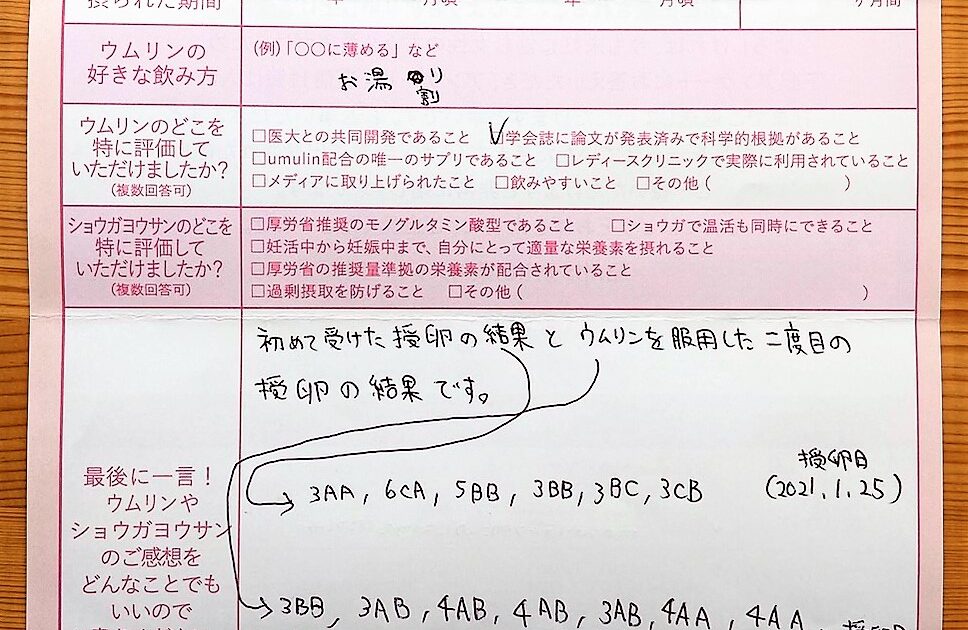 摂られた期間
年 月頃 年 月頃 ヶ月間
ウムリンの
好きな飲み方
(例)「〇〇に薄める」など
お湯割り
ウムリンのどこを
特に評価して
いただけましたか?
(複数回答可)
□医大との共同開発であること ☑学会誌に論文が発表済みで科学的根拠があること
□umulin配合の唯一のサプリであること □レディースクリニックで実際に利用されていること
□メディアに取り上げられたこと □飲みやすいこと □その他 ( )
ショウガヨウサンのどこを
特に評価して
いただけましたか?
(複数回答可)
□厚労省推奨のモノグルタミン酸型であること □ショウガで温活も同時にできること
□妊活中から妊娠中まで、自分にとって適量な栄養素を摂れること
□厚労省の推奨量準拠の栄養素が配合されていること
□過剰摂取を防げること □その他 ( )
最後に一言!
ウムリンや
ショウガヨウサン
のご感想を
どんなことでも
いいので
初めて受けた採卵の結果とウムリンを服用した二度目の
採卵の結果です。
採卵日
3AA, 6CA, 5BB, 3BB, 3BC, 3CB (2021.1.25)
3BB, 3AB, 4AB, 4AB, 3AB, 4AA, 4AA,